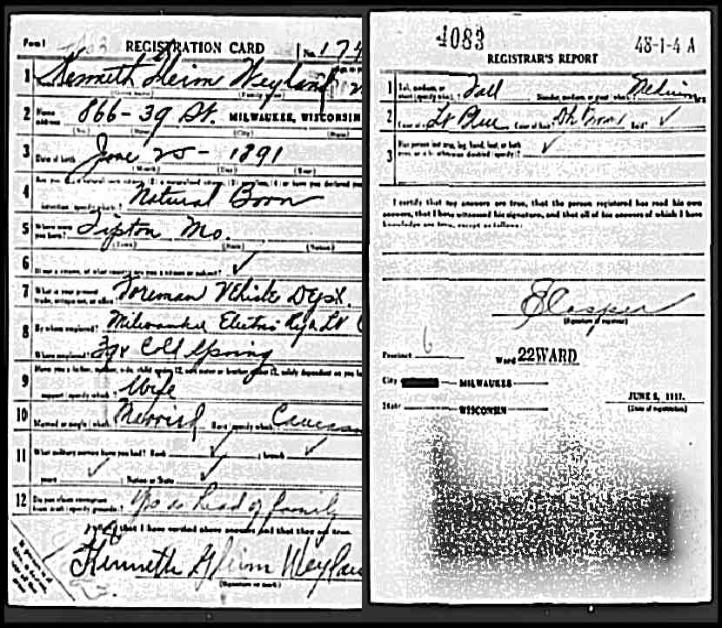 Form 1 REGISTRATION CARD No. 174
1 Kenneth Gleim Weyland
2 Home address 866-39 St. MILWAUKEE, WISCONSIN
(No.) (Street) (City) (State)
3 Date of birth June 25 - 1891
(Month) (Day) (Year)
4 Natural Born
5 Where were you born? Tipton Mo.
(Town) (State) (Nation)
6 If not a citizen, of what country are you a citizen or subject? ✓
7 What is your present trade, occupation, or office Foreman Vehicle Dept.
8 By whom employed? Milwaukee Electric Ry & Lt
Where employed?
9 Wife
support (specify which)
10 Married or single (which) Married Race (specify which)
11 What military service have you had? Rank ✓ ; branch ✓
years ✓ ; Nation or State ✓
12 Do you claim exemption from draft (specify grounds)? Yes as head of family
that I have verified above answers and that they are true.
Kenneth Gleim Weyland
(Signature or mark)
4083 48-1-4 A
REGISTRAR'S REPORT
1 Tall Medium
2 Color of eyes Lt Blue Color of hair Bald ✓
3 Has person lost arm, leg, hand, foot, or both ✓
I certify that my answers are true, that the person registered has read his own
answers, that I have witnessed his signature, and that all of his answers of which I have
knowledge are true, except as follows:
(Signature of registrar)
Precinct 6 Ward 22 WARD
City MILWAUKEE
State WISCONSIN
JUNE 5, 1917.
(Date of registration)